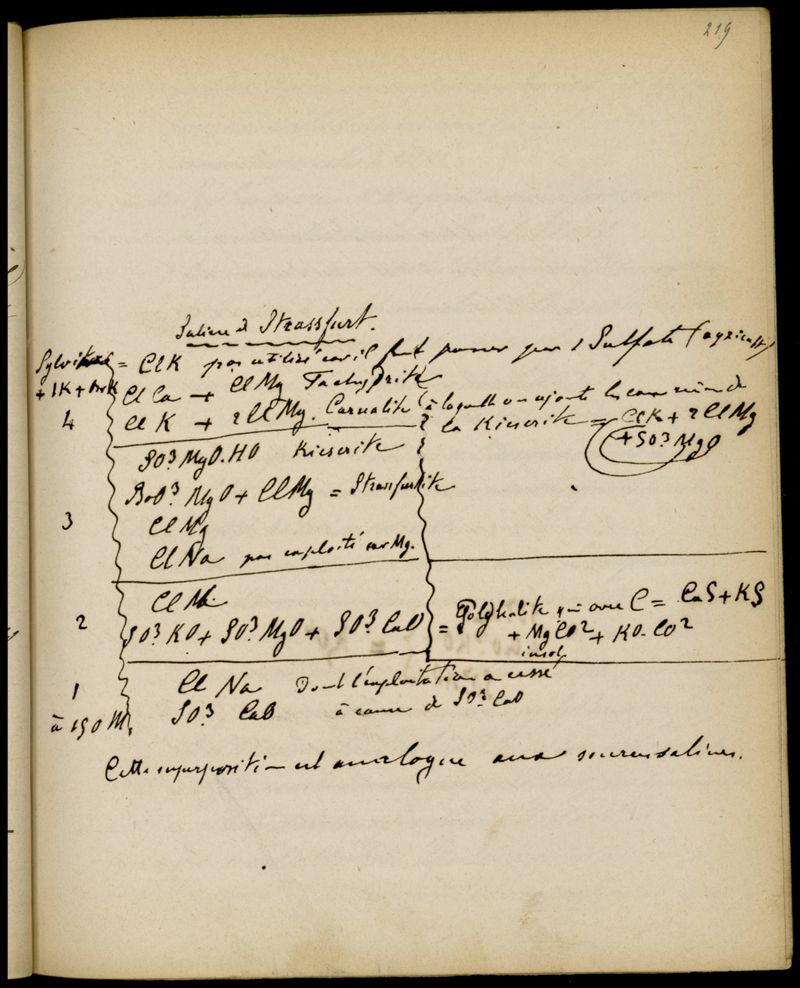 219
Saline de Strassfurt.
Sylvite = ClK pas utilisé car il faut passer par l Sulfate (
+ IK + BrK
ClCa + ClMg Tachydrite
4 ClK + 2ClMg. Carnalite à laquelle on ajoute les eaux mères de
la Kieserite = ClK + 2ClMg
+ SO³MgO
SO³MgO.HO Kieserite
BoO³MgO + ClMg = Strassfurtite
3 ClMg
ClNa pas exploité car Mg.
2 SO³KO + SO³MgO + SO³CaO = Polyhalite qui avec C = CaS + KS
+ MgCO² + KO-CO²
insol
1 Cl Na Dont l'exploitation a cessé
à 150 M. SO³ CaO à cause de SO³ CaO
Cette superposition est analogue aux sources salines.